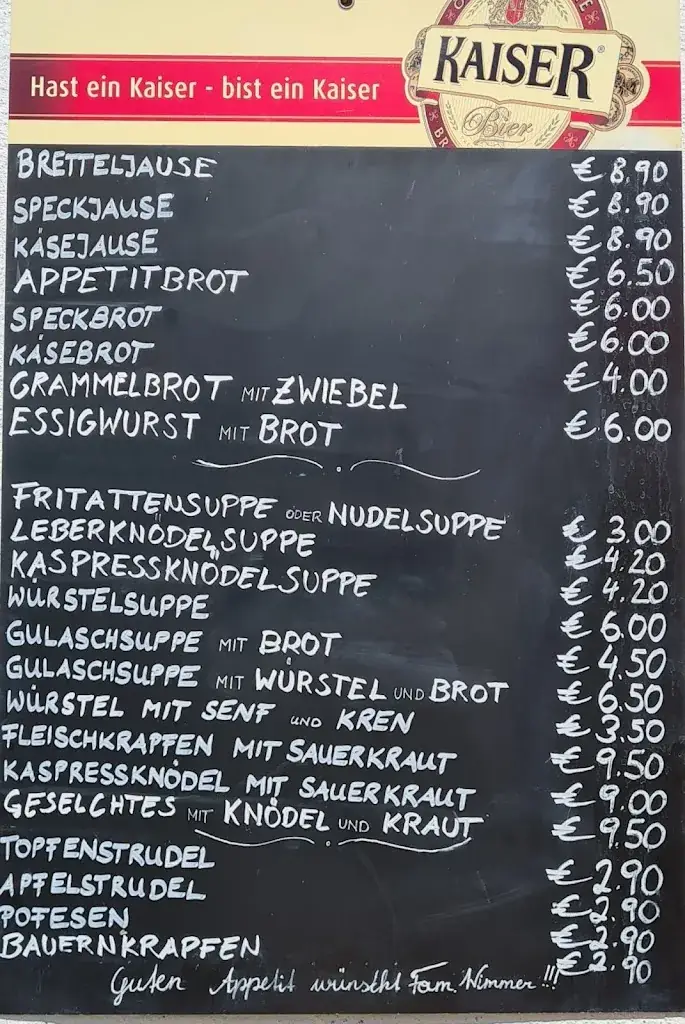 KAISER®
Hast ein Kaiser - bist ein Kaiser
Bier
BRETTELJAUSE € 8.90
SPECKJAUSE € 8.90
KÄSEJAUSE € 8.90
APPETITBROT € 6.50
SPECKBROT € 6.00
KÄSEBROT € 6.00
GRAMMELBROT MIT ZWIEBEL € 4.00
ESSIGWURST MIT BROT € 6.00
FRITATTENSUPPE ODER NUDELSUPPE € 3.00
LEBERKNÖDELSUPPE € 4.20
KASPRESSKNÖDELSUPPE € 4.20
WÜRSTELSUPPE € 6.00
GULASCHSUPPE MIT BROT € 4.50
GULASCHSUPPE MIT WÜRSTEL UND BROT € 6.50
WÜRSTEL MIT SENF UND KREN € 3.50
FLEISCHKRAPFEN MIT SAUERKRAUT € 9.50
KASPRESSKNÖDEL MIT SAUERKRAUT € 9.00
GESELCHTES MIT KNÖDEL UND KRAUT € 9.50
TOPFENSTRUDEL € 2.90
APFELSTRUDEL € 2.90
POFESEN € 2.90
BAUERNKRAPFEN € 2.90
Guten Appetit wünscht Fam Nimmer!!!